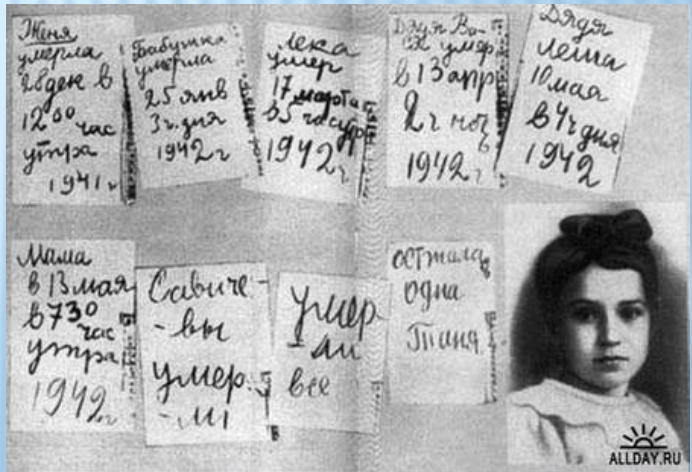 Женя
умерла
28 дек в
12 00 час
утра
1941 г
Бабушка
умерла
25 янв
3 ч. дня
1942 г
Лека
умер
17 марта
в 5 час утр
1942 г
Дядя Ва-
ся умер
в 13 апр
2 ч ноч
1942 г
Дядя
Леша
10 мая
в 4 ч дня
1942
Мама
в 13 мая
в 7 30
час
утра
1942 г
Савиче-
-вы
умер-
-ли
Умер-
-ли
все
осталась
одна
Таня
ALLDAY.RU